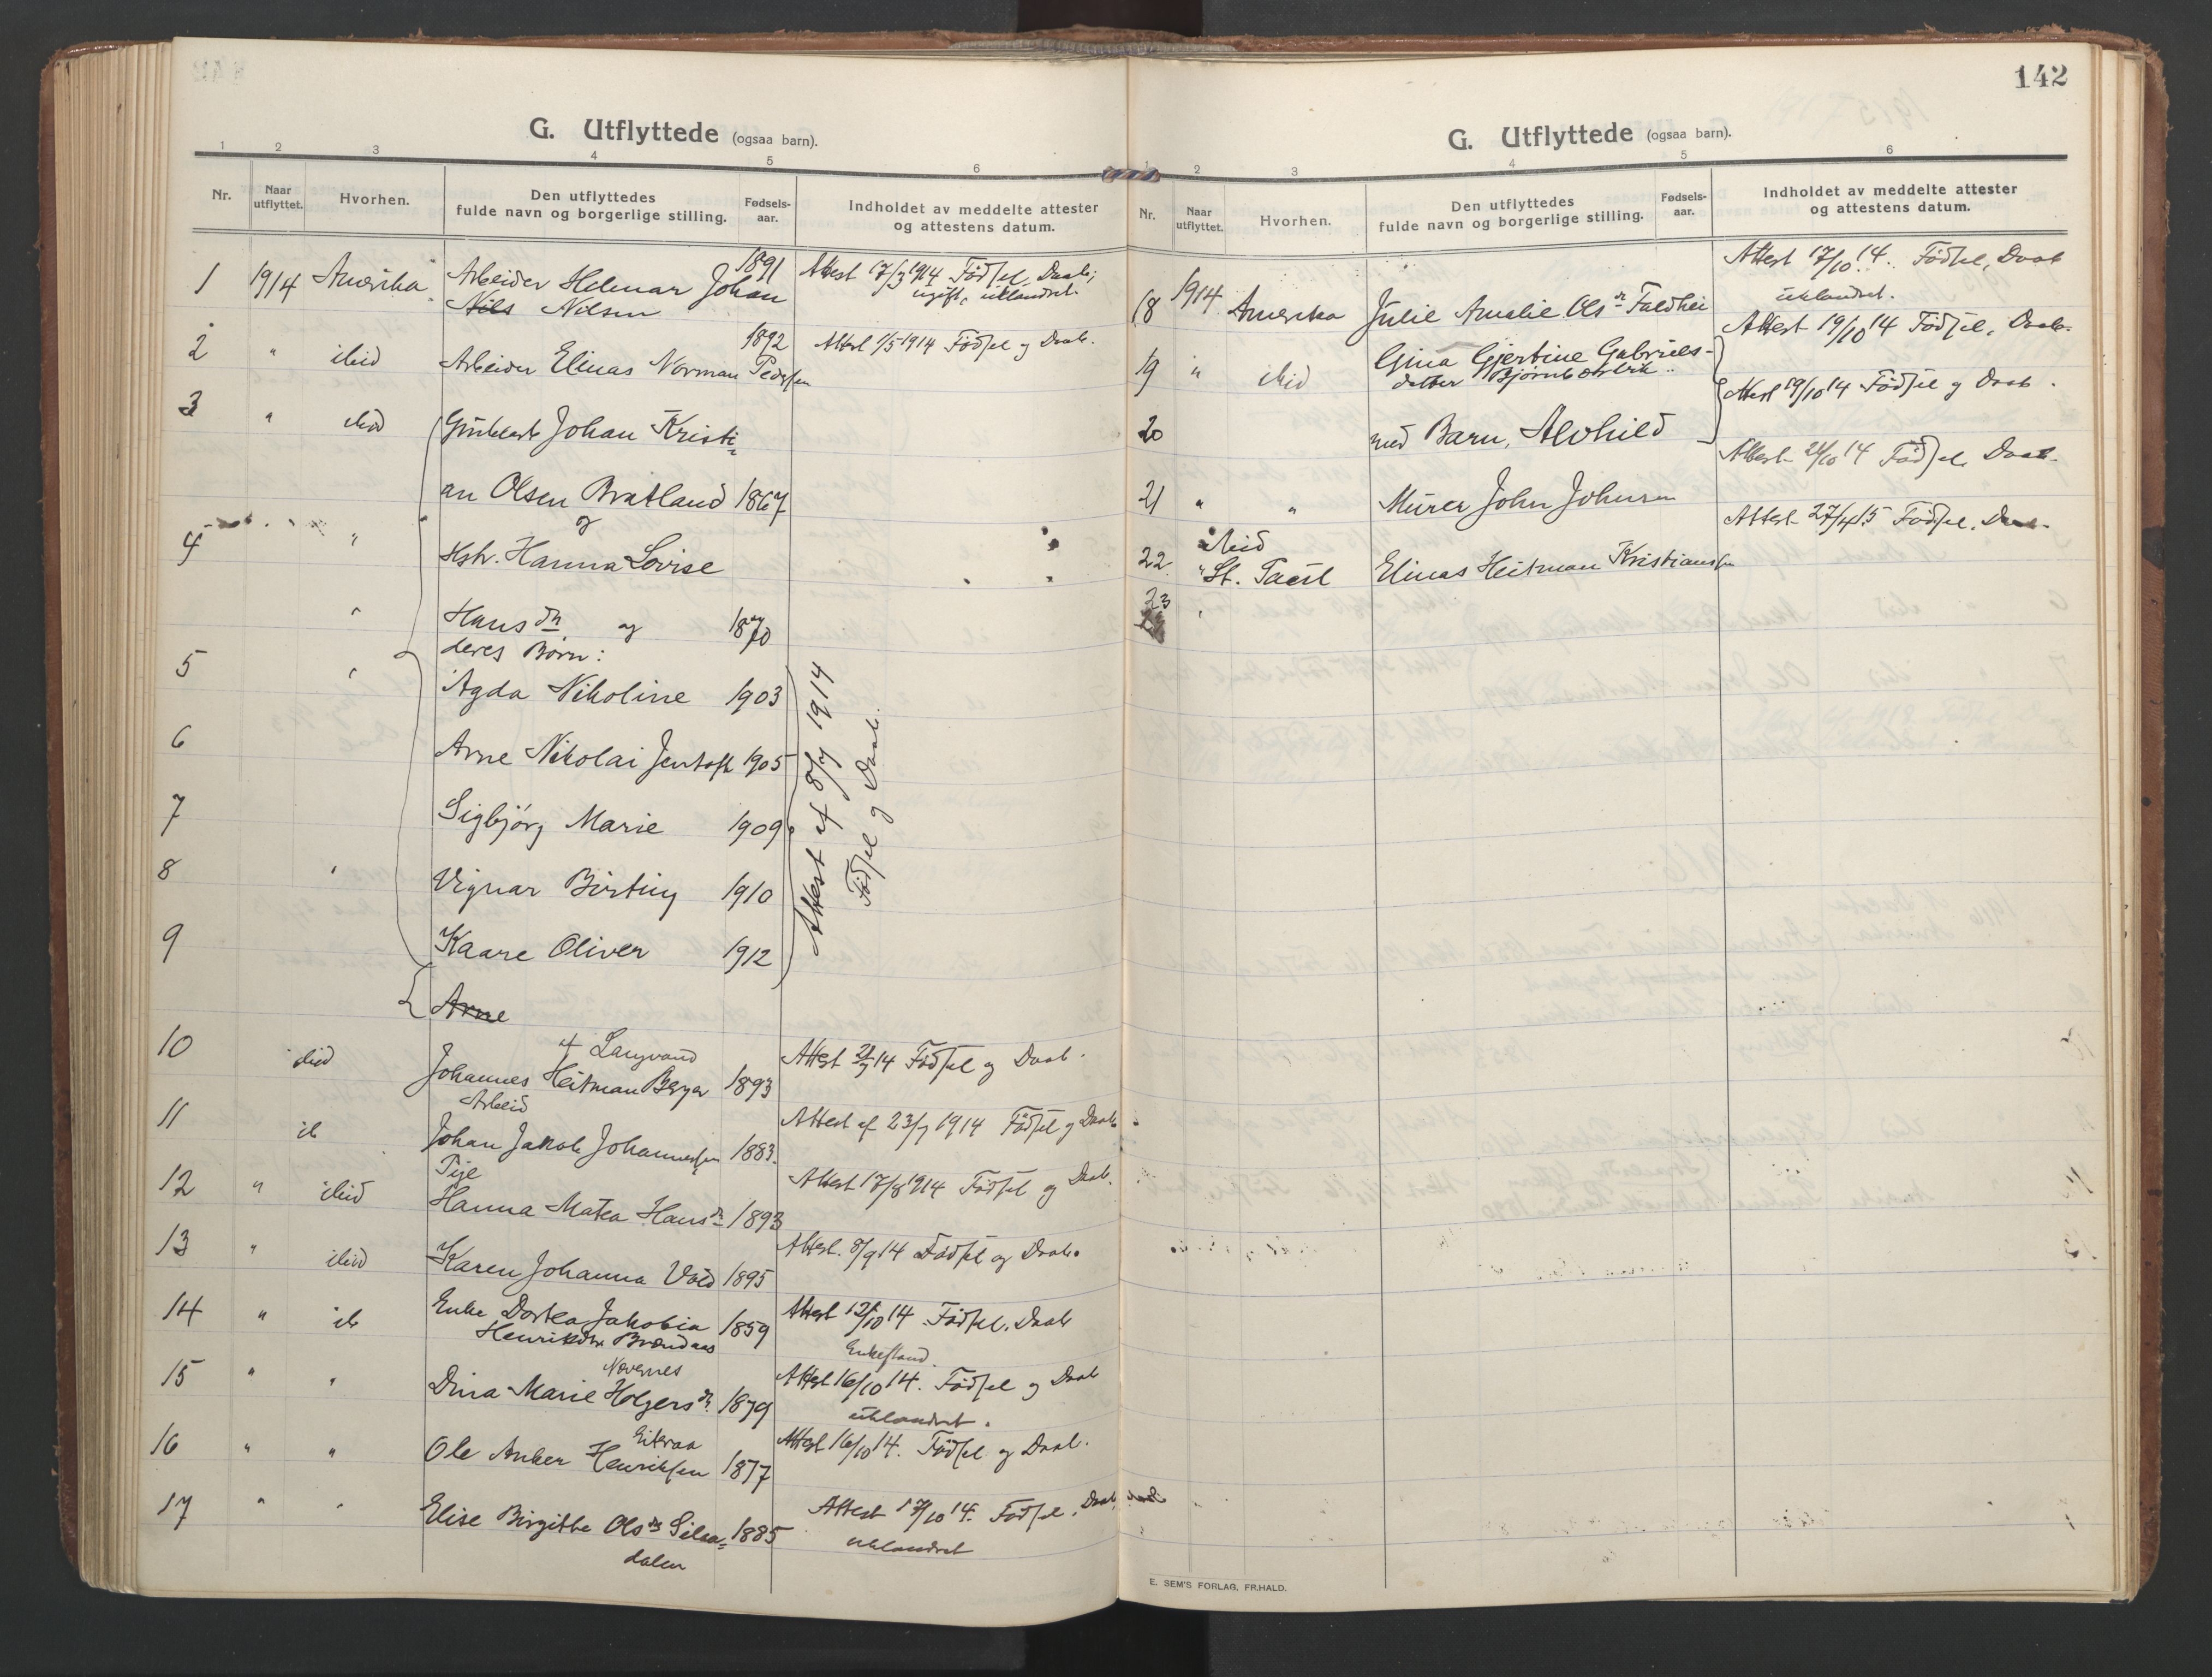 G. Utflyttede (ogsaa barn).
1 2 3 4 5 6
Nr. Naar utflyttet. Hvorhen. Den utflyttedes fulde navn og borgerlige stilling. Fødselsaar. Indholdet av meddelte attester og attestens datum.
1 1914 Amerika Arbeider Helmar Johan 1891 Attest 17/3 1914 Fødsel, Daab,
Nils Nilsen ugift, uklandret.
2 " ibid Arbeider Elinas Norman Pedersen 1892 Attest 1/5 1914 Fødsel og Daab.
3 " ibid Johan Kristi
an Olsen Bratland 1867
og
4 " Hstr. Hanna Lovise
" Hans dtr. og 1870
deres Børn:
5 " Agda Nikoline 1903
6 Arne Nikolai Jentoft 1905
7 Sigbjørg Marie 1909
8 " Vignar Birting 1910
9 Kaare Oliver 1912
Attest af 8/7 1914
Fødsel og Daab.
Arne
10 ibid af Langvand
Johannes Heitman Berger 1893 Attest 14 Fødsel og Daab.
Arbeid
11 ib Johan Jakob Johannessen 1883. Attest af 23/7 1914 Fødsel og Daab.
Pige
12 " ibid Hanna Matea Hansdr 1893 Attest 17/8 1914 Fødsel og Daab.
13 " ibid Karen Johanna Vold 1895 Attest. 8/9 14 Fødsel og Daab.
14 " ib Enke Dortea Jakobia 1859 Attest 12/10 14 Fødsel, Daab
Henriksdtr Brændaas Enkestand.
Nævernes
15 " " Dina Marie Holgersdr. 1879 Attest 16/10 14. Fødsel og Daab
uklandret.
Eiteraa
16 " " Ole Anker Henriksen 1877 Attest 16/10 14. Fødsel og Daab.
17 " " Elise Birgithe Olsdr 1885 Attest 17/10 14. Fødsel, Daab,
dalen uklandret
142
G. Utflyttede (ogsaa barn).
1 2 3 4 5 6
Nr. Naar utflyttet. Hvorhen. Den utflyttedes fulde navn og borgerlige stilling. Fødselsaar. Indholdet av meddelte attester og attestens datum.
Attest 17/10 14. Fødsel, Daab
uklandret.
18 1914 Amerika Julie Amalie Olsdr Faldhei
Attest 19/10 14 Fødsel, Daab.
19 " ibid Gina Gjertine Gabriels-
datter
Attest 19/10 14 Fødsel og Daab.
20 med Barn, Alvhild
Attest 14 Fødsel, Daab.
21 " " Murer John Johnsen
Attest 27/4 15 Fødsel, Daab.
ibid
22 " St. Elinas Heitman Kristiansen
23 "
E. SEM'S FORLAG, FR.HALD.